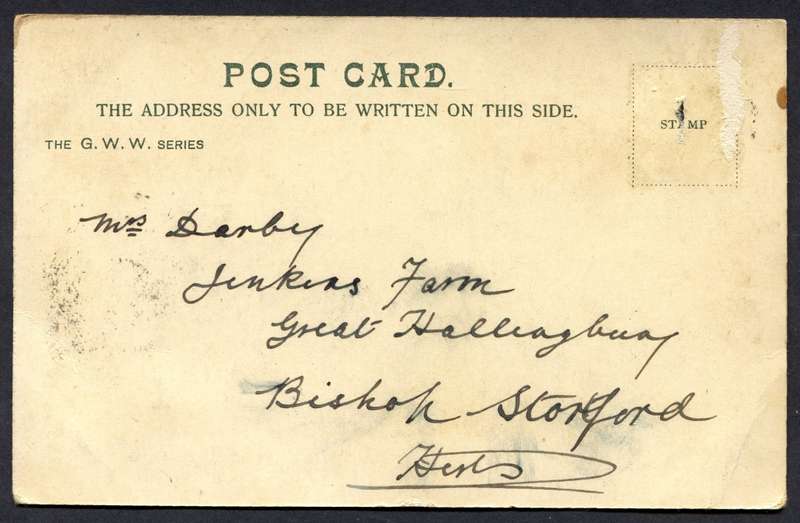 POST CARD.
THE ADDRESS ONLY TO BE WRITTEN ON THIS SIDE.
THE G. W. W. SERIES
STAMP
Mrs Darby
Jenkins Farm
Great Hallingbury
Bishop Stortford
Herts